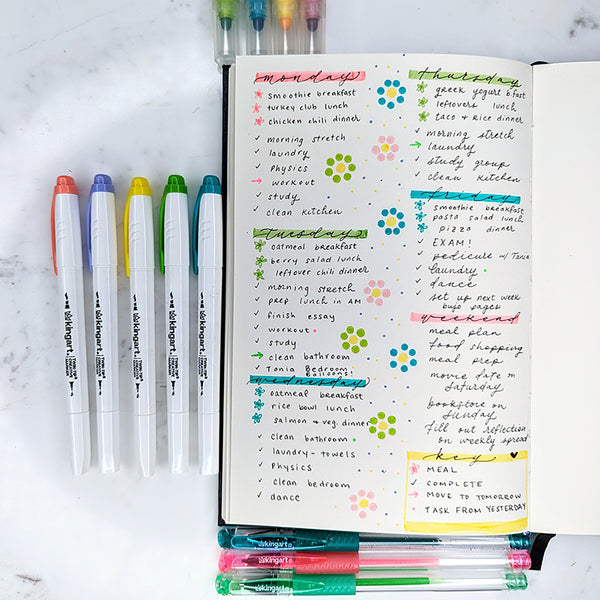 monday
smoothie breakfast
turkey club lunch
chicken chili dinner
✓ morning stretch
✓ laundry
✓ physics
→ workout
✓ study
✓ clean kitchen
tuesday
oatmeal breakfast
berry salad lunch
leftover chili dinner
✓ morning stretch
✓ prep lunch in AM
finish essay
✓ workout •
✓ study
→ clean bathroom
Tania Bedroom
Balloons!
wednesday
oatmeal breakfast
rice bowl lunch
salmon & veg. dinner
✓ clean bathroom •
laundry - towels
✓ Physics
✓ clean bedroom
✓ dance
thursday
greek yogurt b'fast
leftovers lunch
taco & rice dinner
✓ morning stretch
→ laundry
✓ study group
✓ clean kitchen
friday
smoothie breakfast
pasta salad lunch
pizza dinner
✓ EXAM!
✓ pedicure w/ Tania
✓ laundry •
✓ dance
✓ set up next week
bujo pages
weekend
meal plan
food shopping
meal prep
movie date on
saturday
bookstore on
Sunday
fill out reflection
on weekly spread
key
MEAL
✓ COMPLETE
→ MOVE TO TOMORROW
• TASK FROM YESTERDAY
kingart
kingart
kingart
kingart
kingart
kingart
kingart
kingart